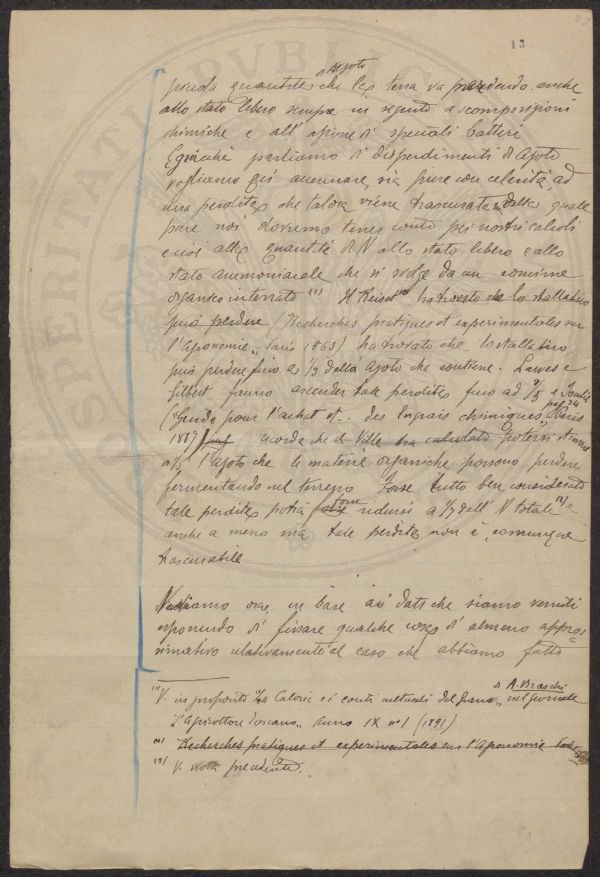 13
d'azoto
piccola quantità che la terra va perdendo anche
allo stato libero sempre in seguito a scomposizioni
chimiche e all'azione di speciali batteri
E giacchè parliamo di disperdimenti di azoto
vogliamo quì accennare, sia pure con celerità, ad
una perdita che talora viene trascurata, della quale
pure noi dovremo tener conto pei nostri calcoli
e cioè alla quantità di N allo stato libero e allo
stato ammoniacale che si svolge da un concime
organico interrato (1) Il Reiset ha trovato che lo stallatico
può perdere (Recherches pratiques et experimentales sur
l'Agronomie, Paris 1863) ha trovato che lo stallatico
può perdere fino a 1/3 della Azoto che contiene. Lawes e
Gilbert fanno ascendere tale perdita fino ad 2/5 e Joulie
(Guide pour l'achat et.. des Engrais chimiques, Paris
pag 34
1887 pag ricorda che il Ville ha calcolato potersi
a 1/3 l'azoto che le materie organiche possono perdere
fermentando nel terreno Forse tutto ben considerato
tale perdita potrà forse ridursi a 1/3 dell'N totale (2) e
anche a meno ma tale perdita non è, comunque
trascurabile
Vediamo ora, in base ai dati che siamo venuti
esponendo di fissare qualche cosa di almeno appros=
simativo relativamente al caso che abbiamo fatto
(1) V. in proposito Le Calorie e i conti colturali del grano, di A. Braschi nel giornale
L'Agricoltore Toscano, Anno IX n° 1 (1891)
(2) Recherches pratiques et experimentales sur l'Agronomie
(2) V. nota precedente.